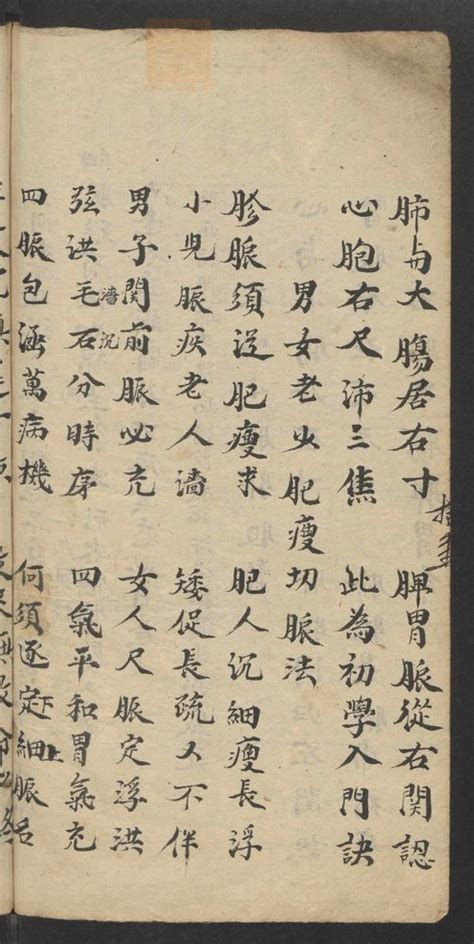 肺与大腸居右寸　脾胃脈從右関認
心胞右尺沛三焦　此為初學入門訣
男女老少肥瘦切脈法
胗脈須従肥瘦求　肥人沉細瘦長浮
小児脈疾老人濇　矮促長疏又不伴
濇沉
男子関前脈必充　女人尺脈定浮洪
弦洪毛石分時序　四氣平和胃氣充
四脈包涵萬病機　何須逐定細脈名
下上